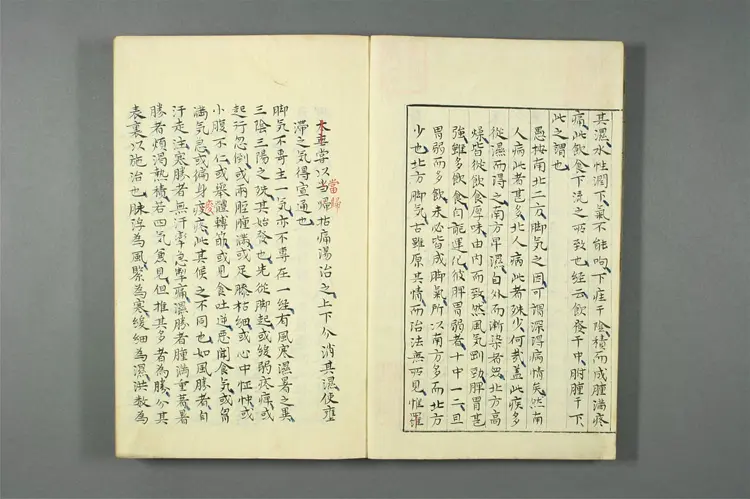 其濕水性潤下氣不能呴下疰于陰積而成腫滿疼
痛此飲食下流之所致也經云飲發于中胕腫于下
此之謂也
愚按南北二方脚气之因可謂深得病情矣然南
人病此者甚多北人病此者殊少何哉盖此疾多
從濕而得之南方卑濕自外而漸染者衆北方高
燥皆從飲食厚味由内而致然風气剛勁脾胃甚
強雖多飲食自能運化彼脾胃弱者十中一二且
胃弱而多飲未必皆成脚氣所以南方多而北方
少也北方脚気古雖原其情而治法無所見惟羅
太書掌以當歸拈痛湯治之上下分消其濕使壅
當歸
滞之气得宣通也
脚気不專主一気亦不專在一経有風寒濕暑之異
三陰三陽之殊其始發也先從脚起或緩弱疼痺或
起行忽倒或兩脛腫滿或足膝枯細或心中忪悸或
小腹不仁或舉體轉筋或見食吐逆惡聞食気或胷
滿気急或偏身疼此其候之不同也如風勝者自
汗走注寒勝者無汗攣急掣痛濕勝者腫滿重著暑
勝者煩渴熱積若四気兼見但推其多者為勝分其
表裏以施治也脉浮為風緊為寒緩細為濕洪数為